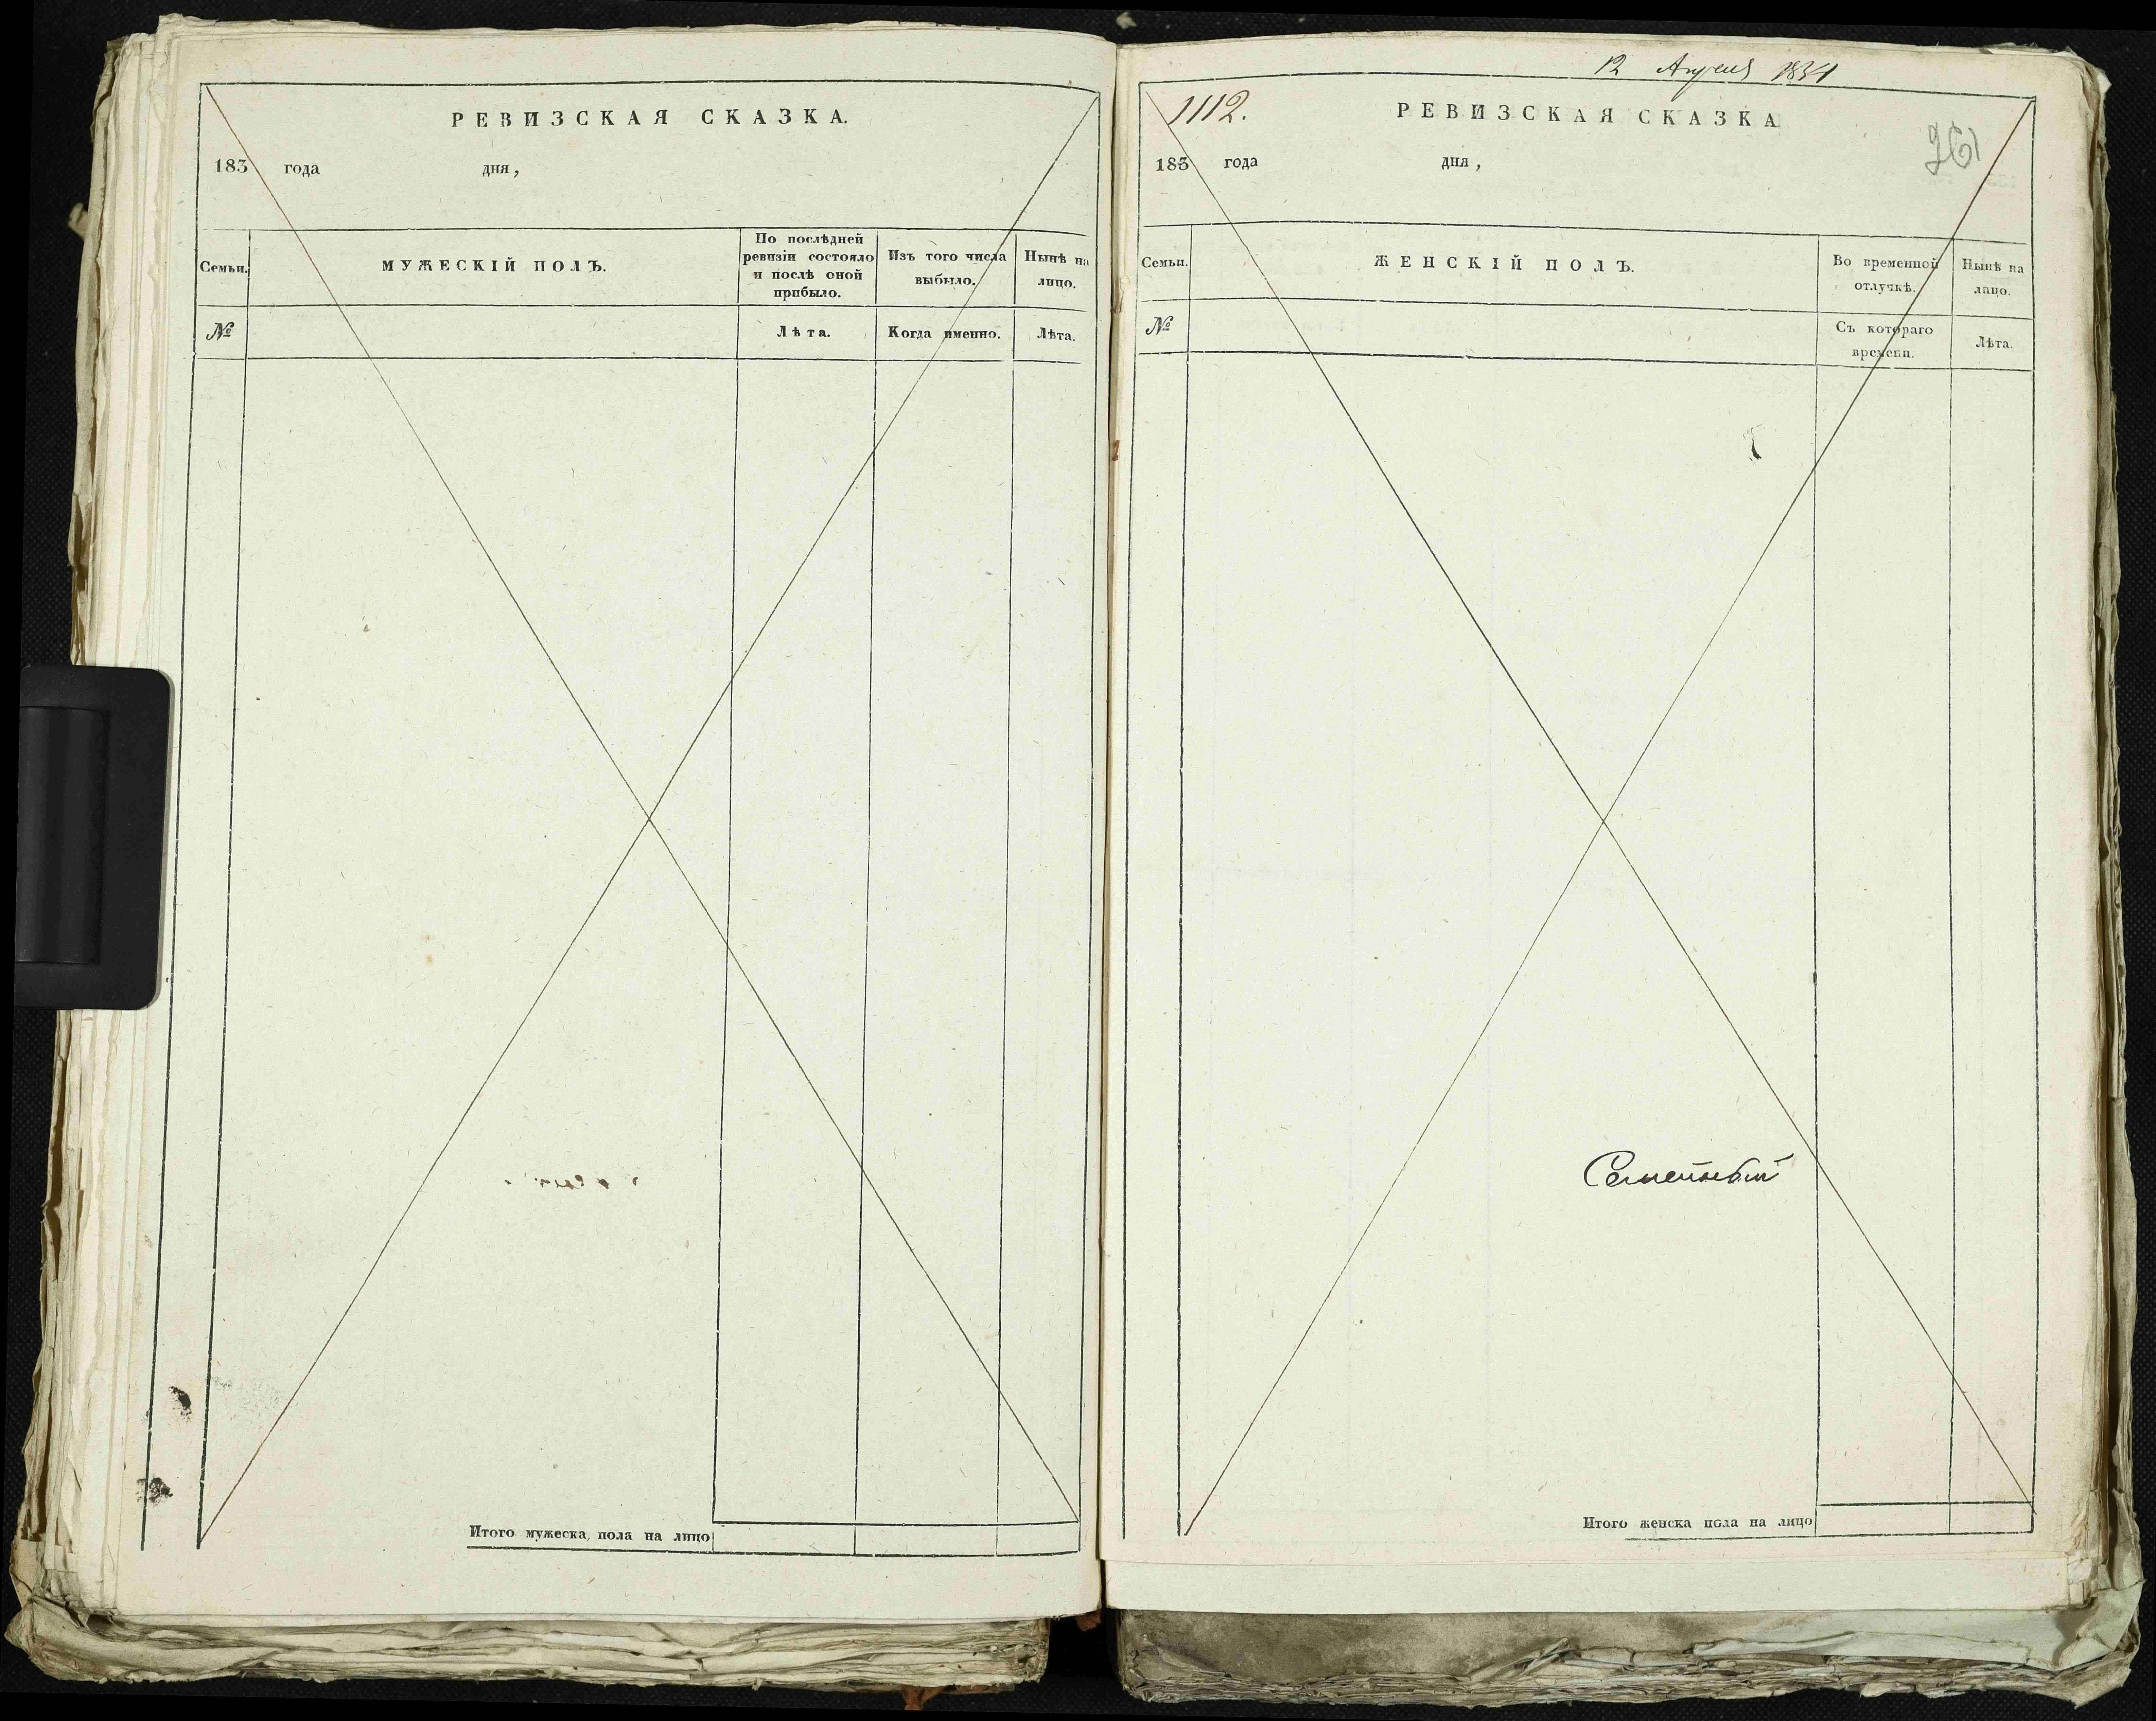 РЕВИЗСКАЯ СКАЗКА.
183 года дня,
Семьи.
МУЖЕСКІЙ ПОЛЪ.
По послѣдней
ревизіи состояло
и послѣ оной
прибыло.
Изъ того числа
выбыло.
Нынѣ на
лицо.
№
Лѣта.
Когда именно.
Лѣта.
Итого мужеска пола на лицо
12 Апреля 1834
1112.
РЕВИЗСКАЯ СКАЗКА
261
183 года дня,
Семьи.
ЖЕНСКІЙ ПОЛЪ.
Во временной
отлучкѣ.
Нынѣ на
лицо.
№
Съ котораго
времени.
Лѣта.
Семейный
Итого женска пола на лицо